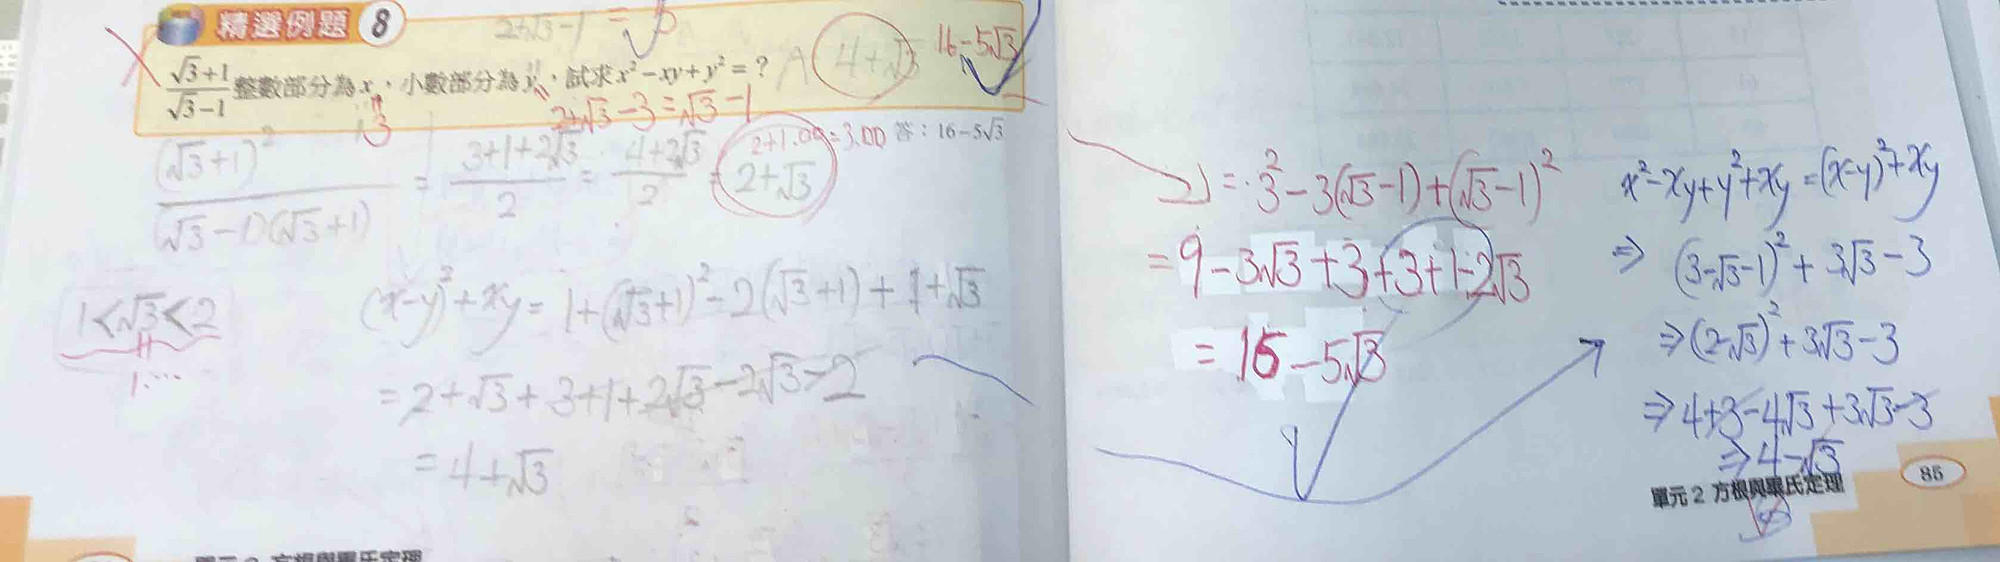 精選例題 8
2+√3-1 =
√3+1/√3-1 整數部分為 x,小數部分為 y,試求 x²-xy+y²=?
A 4+√3 16-5√3
3
2+√3-3=√3-1
答:16-5√3
2+1.00=3.00
(√3+1)²/(√3-1)(√3+1) = 3+1+2√3/2 = 4+2√3/2 = 2+√3
1<√3<2
1.…
(x-y)²+xy=1+(√3+1)²-2(√3+1)+1+√3
=2+√3+3+1+2√3-2√3-2
=4+√3
=3²-3(√3-1)+(√3-1)²
=9-3√3+3+3+1-2√3
=16-5√3
x²-xy+y²+xy=(x-y)²+xy
⇒ (3-√3-1)²+3√3-3
⇒(2-√3)²+3√3-3
⇒4+3-4√3+3√3-3
⇒4-√3
單元 2 方根與畢氏定理
85